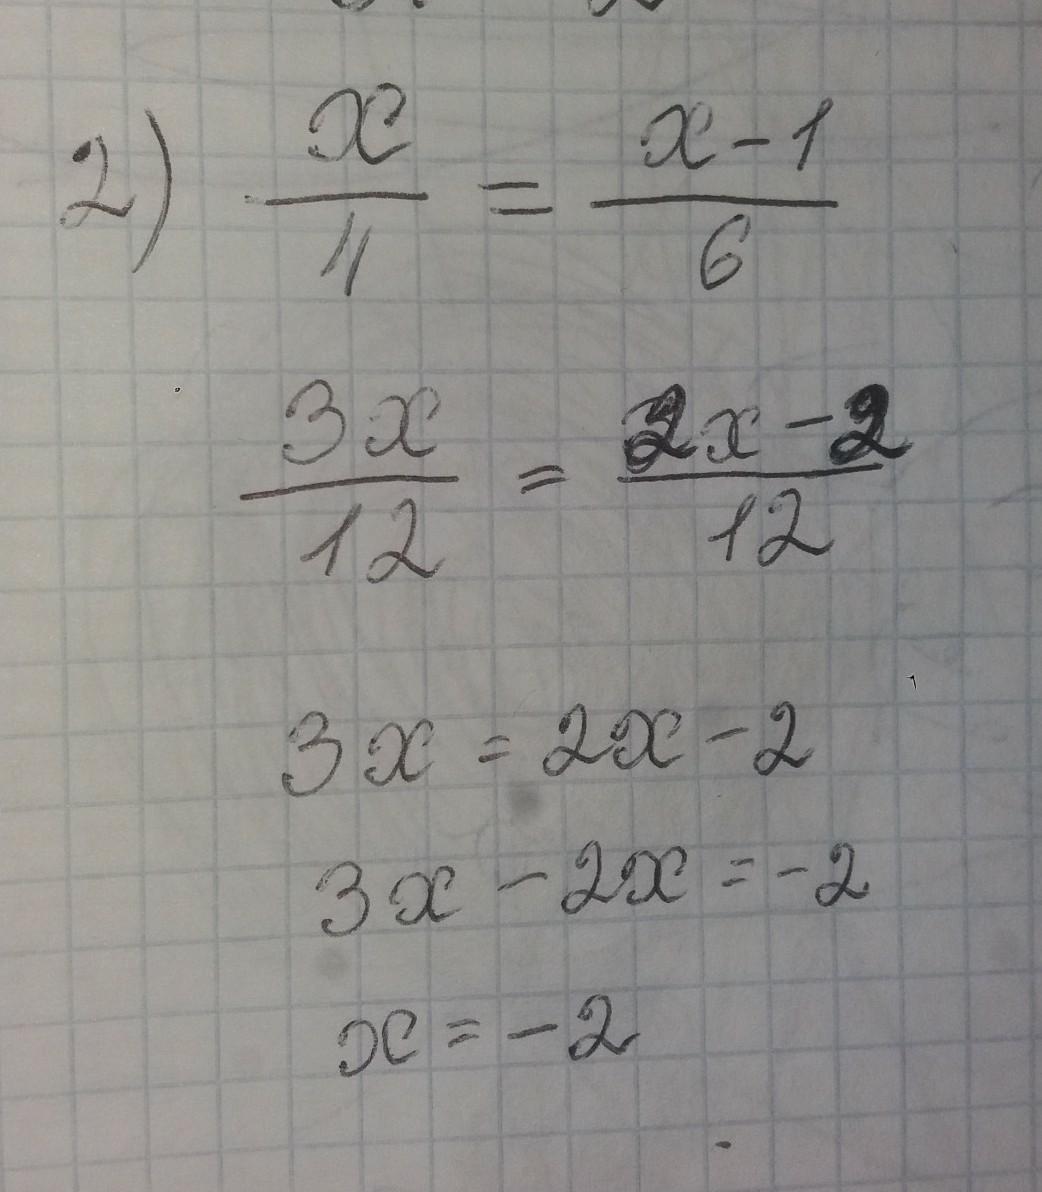 2) x/4 = (x-1)/6
3x/12 = (2x-2)/12
3x = 2x-2
3x-2x=-2
x=-2